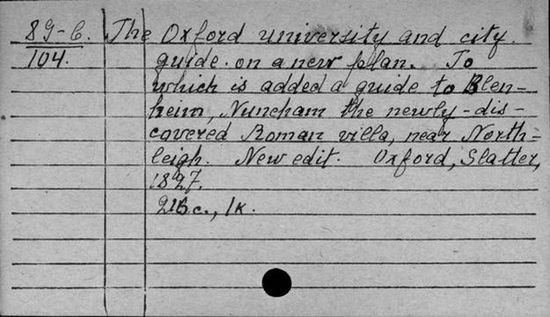 89-C. The Oxford university and city
104. guide on a new plan. To
which is added a guide to Blen-
heim, Nuncham the newly-dis-
covered Roman villa, near North-
leigh. New edit. Oxford, Slatter,
1827.
21Bc., 1k.